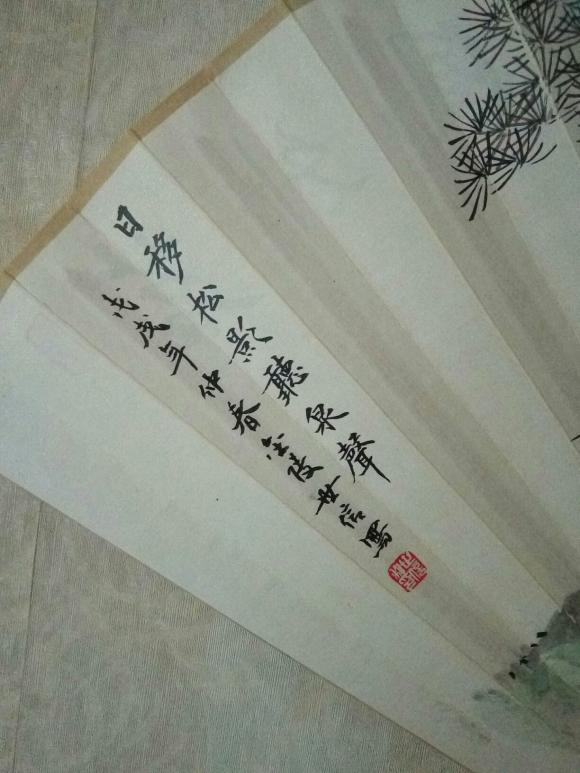 日移松影聽泉聲
戊戌年仲春金陵世信寫